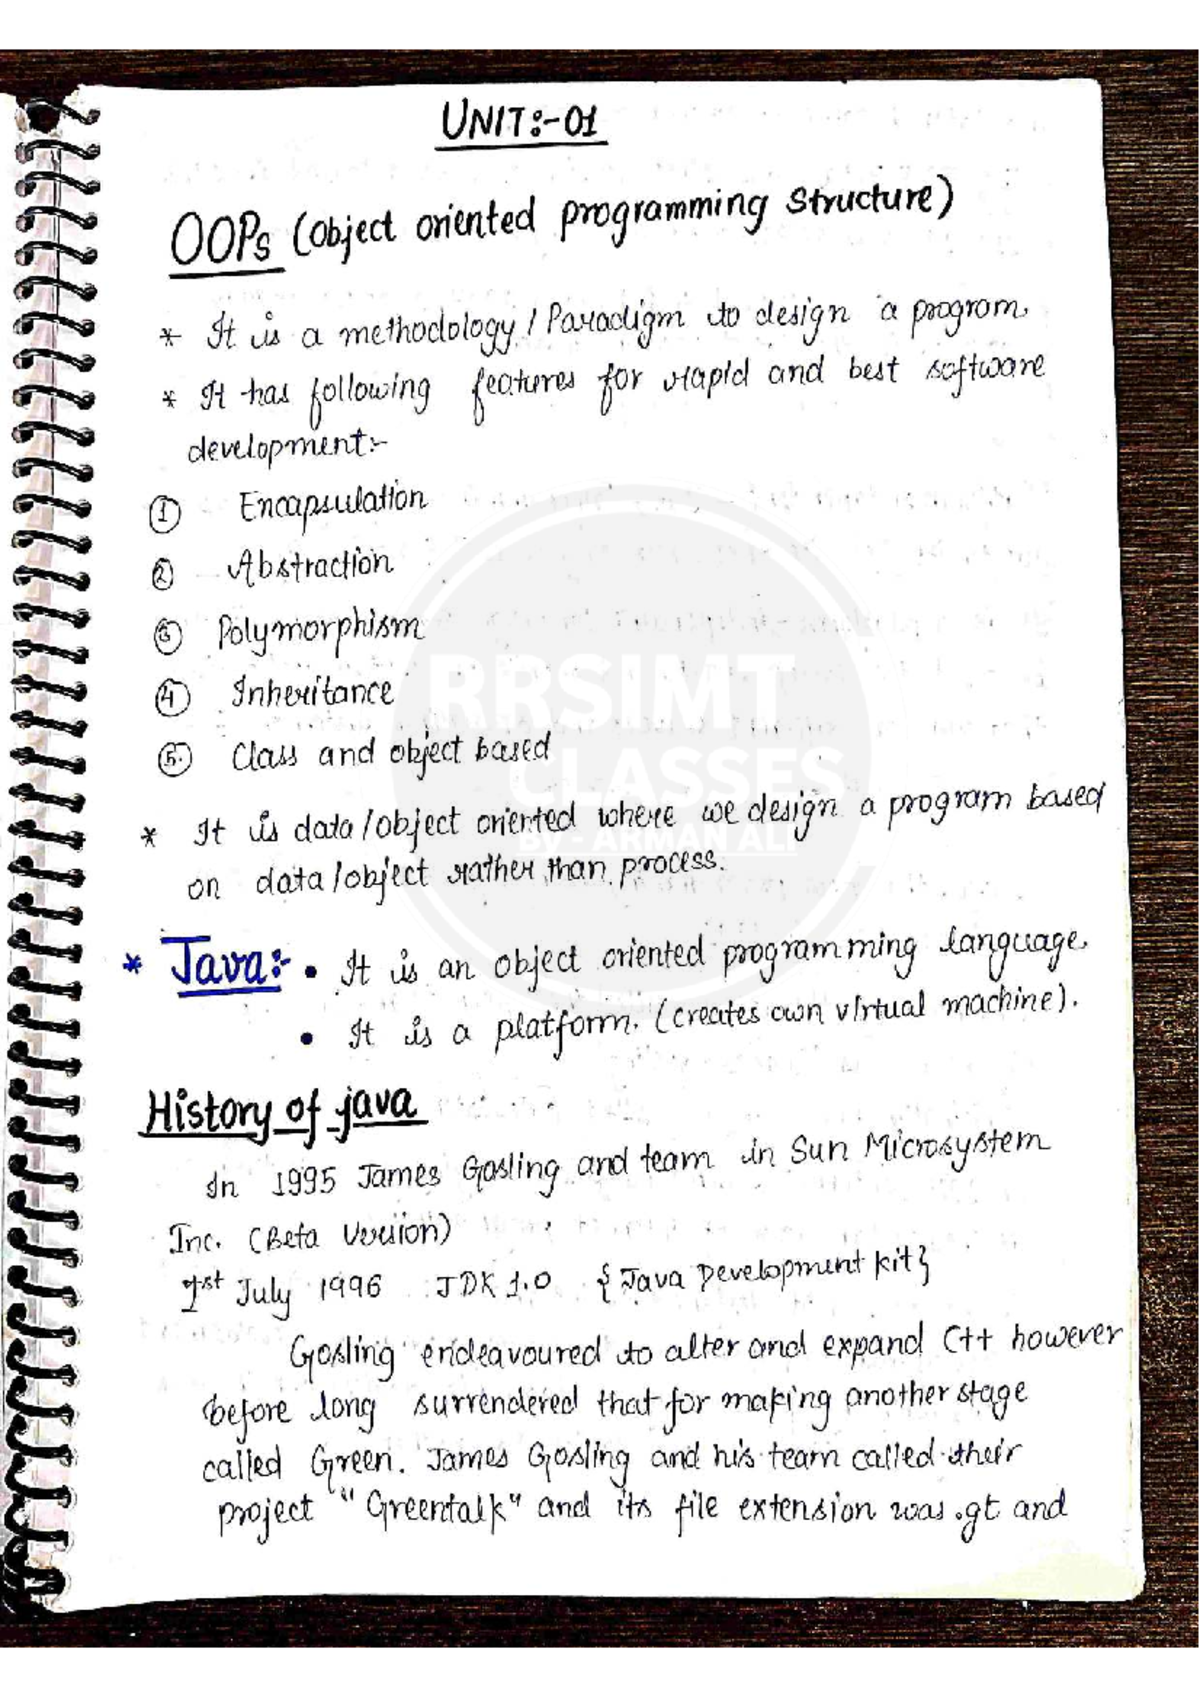 UNIT:-01
OOPs (Object oriented programming Structure)
* It is a methodology / Paradigm to design a program.
* It has following features for rapid and best software
development:-
① Encapsulation
② Abstraction
③ Polymorphism
④ Inheritance
⑤ Class and object based
* It is data/object oriented where we design a program based
on data/object rather than process.
* Java:- • It is an object oriented programming language.
• It is a platform. (creates own virtual machine).
History of java
In 1995 James Gosling and team in Sun Microsystem
Inc. (Beta Version)
1st July 1996 JDK 1.0 {Java Development kit}
Gosling endeavoured to alter and expand C++ however
before long surrendered that for making another stage
called Green. James Gosling and his team called their
project "Greentalk" and its file extension was .gt and
RRSIMT
CLASSES
By - ARMAN ALI